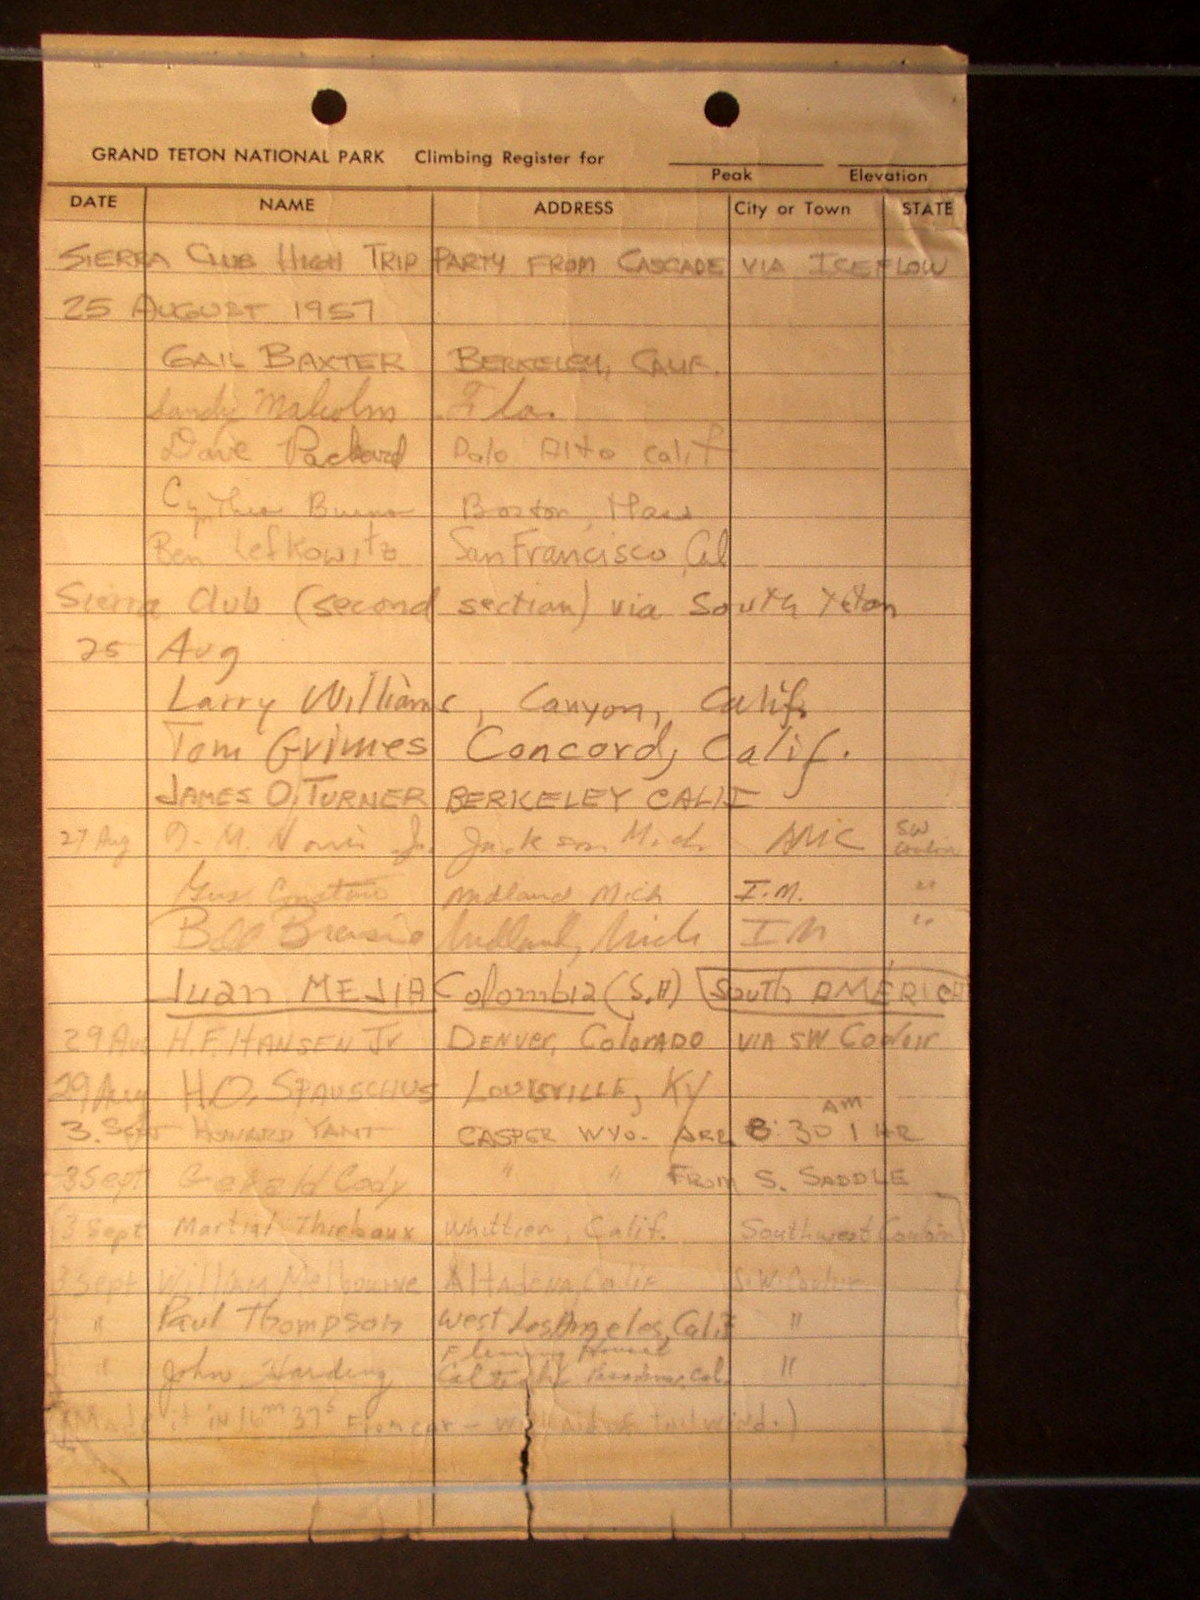 GRAND TETON NATIONAL PARK Climbing Register for
Peak Elevation
DATE NAME ADDRESS City or Town STATE
SIERRA CLUB HIGH TRIP PARTY FROM CASCADE VIA ICEFLOW
25 AUGUST 1957
GAIL BAXTER BERKELEY, CALIF.
Sandy Malcolm Fla.
Dave Packard Palo Alto Calif
Cynthia Boston, Mass
Ben Lefkowitz San Francisco Cal
Sierra Club (second section) via South Teton
25 Aug
Larry Williams, Canyon, Calif.
Tom Grimes Concord, Calif.
JAMES O. TURNER BERKELEY CALIF
27 Aug Jr. Jackson Mich. SW
Gus Midland Mich I.M. "
Bill Midland, Mich IM "
Juan MEJIA Colombia (S.A) South AMÉRICA
29 Aug H.F. HANSEN Jr DENVER, COLORADO VIA SW Couloir
29 Aug H.O. SPAUSCHUS LOUISVILLE, KY
3. Sept HOWARD YANT CASPER WYO. ARR. 8:30 AM 1 HR
3 Sept Gerald Cody " " FROM S. SADDLE
3 Sept Martial Thiebaux Whittier, Calif. Southwest Couloir
3 Sept William Melbourne Altadena, Calif S.W. Couloir
" Paul Thompson West Los Angeles, Calif "
" John Harding Fleming House Caltech Pasadena, Cal. "
(Made it in 16m 37s from car – with aid of tail wind.)